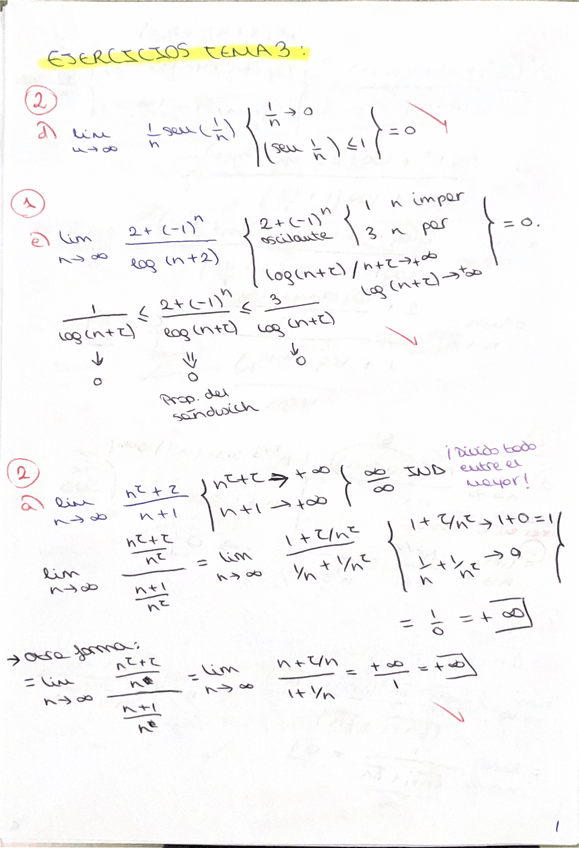 EJERCICIOS TEMA 3:
②
d) lim n→∞ 1/n sen(1/n) { 1/n → 0 ; (sen 1/n) ≤ 1 } = 0
①
e) lim n→∞ (2+(-1)^n)/(log (n+2)) { 2+(-1)^n oscilante { 1 n impar ; 3 n par ; log(n+2) / n+2→+∞ log(n+2)→+∞ } = 0.
1/(log(n+2)) ≤ (2+(-1)^n)/(log(n+2)) ≤ 3/(log(n+2))
↓ ⇓ ↓
0 0 0
Prop. del
sándwich
②
a) lim n→∞ (n²+2)/(n+1) { n²+2 → +∞ ; n+1 → +∞ } ∞/∞ IND ¡Divido todo entre el mayor!
lim n→∞ ((n²+2)/n²)/((n+1)/n²) = lim n→∞ (1+2/n²)/(1/n + 1/n²) { 1+2/n² → 1+0=1 ; 1/n + 1/n² → 0 }
= 1/0 = +∞
→ otra forma:
= lim n→∞ ((n²+2)/n)/((n+1)/n) = lim n→∞ (n+2/n)/(1+1/n) = +∞/1 = +∞
1